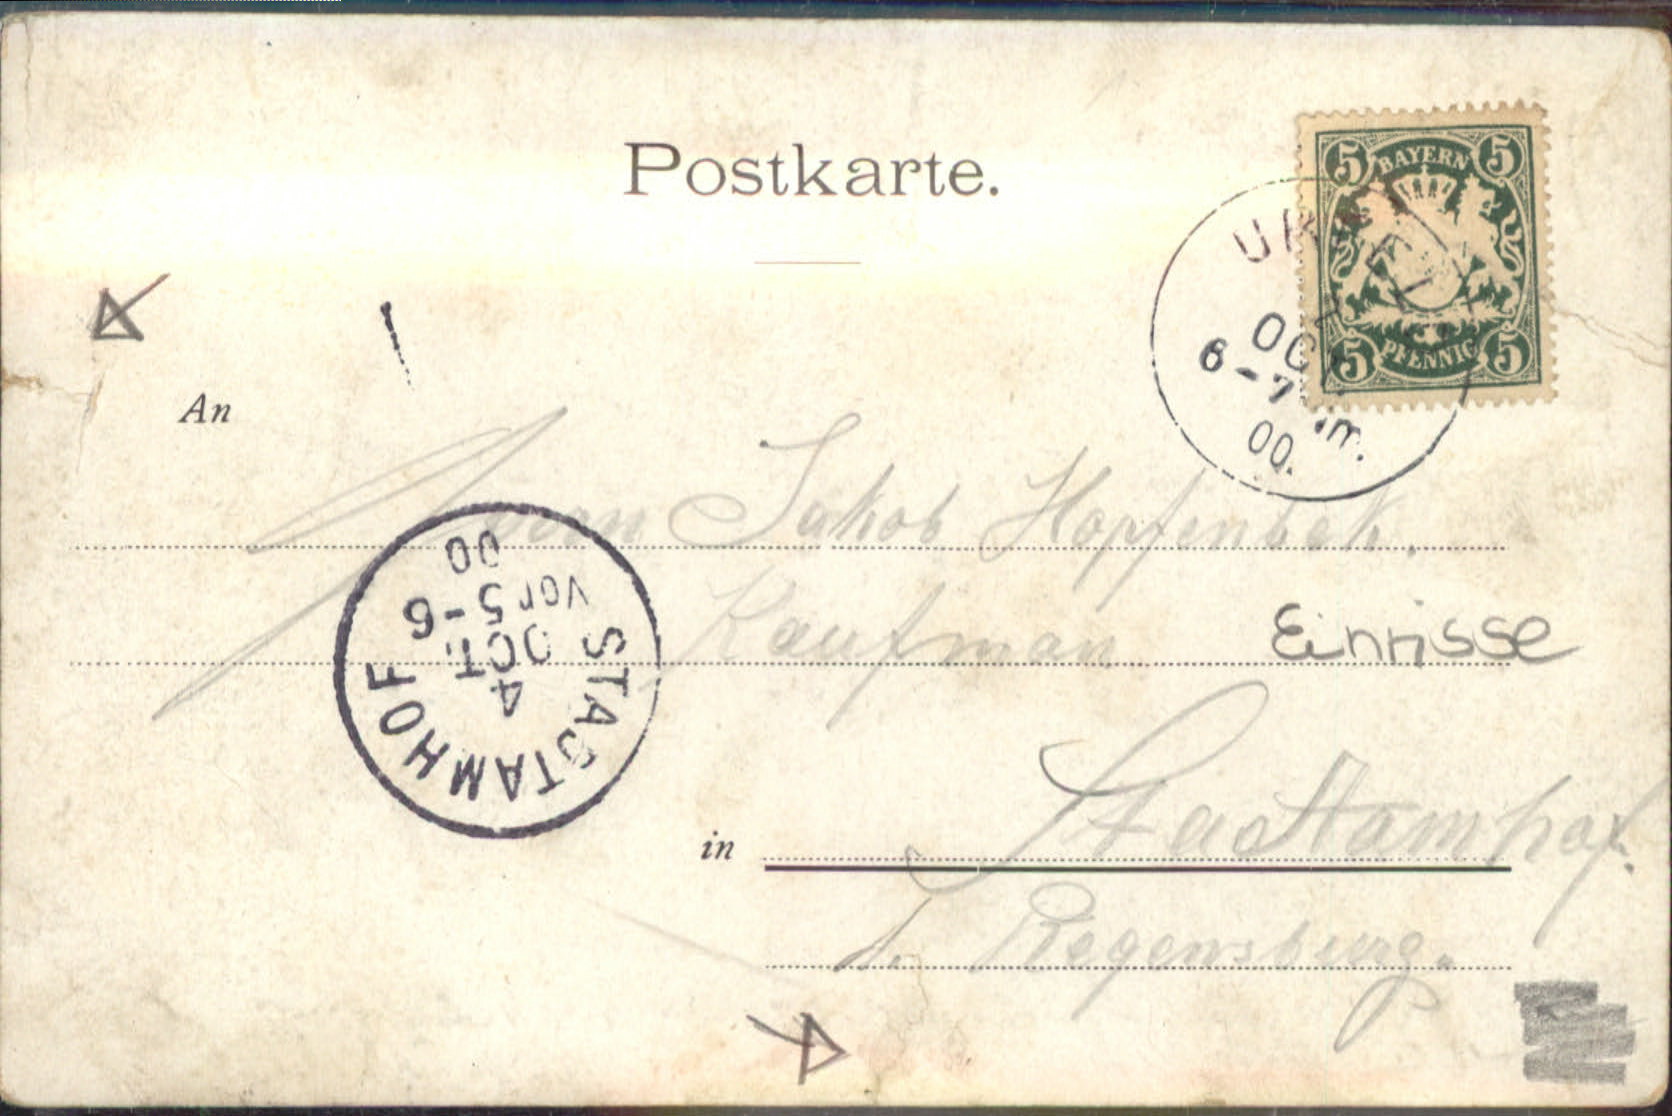 Postkarte.
5 BAYERN 5
5 PFENNIG 5
OCT
6-7 Nm.
00.
An
Herrn Jakob Hopfenbek.
Kaufman
Einrisse
STADTAMHOF
4
OCT.
Vor 5-6
00
in Stadtamhof.
b. Regensburg.